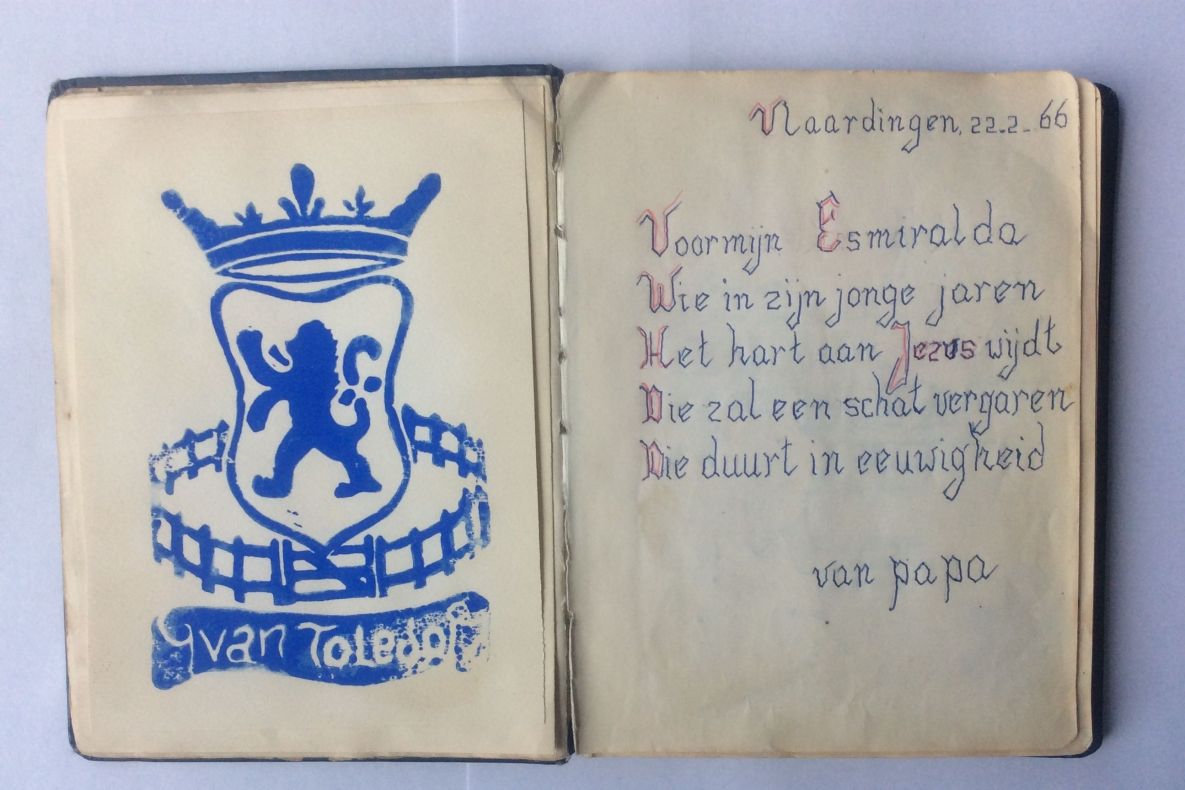 Yvan Toledo
Vlaardingen, 22-2-66
Voor mijn Esmiralda
Wie in zijn jonge jaren
Het hart aan Jezus wijdt
Die zal een schat vergaren
Die duurt in eeuwigheid
van papa